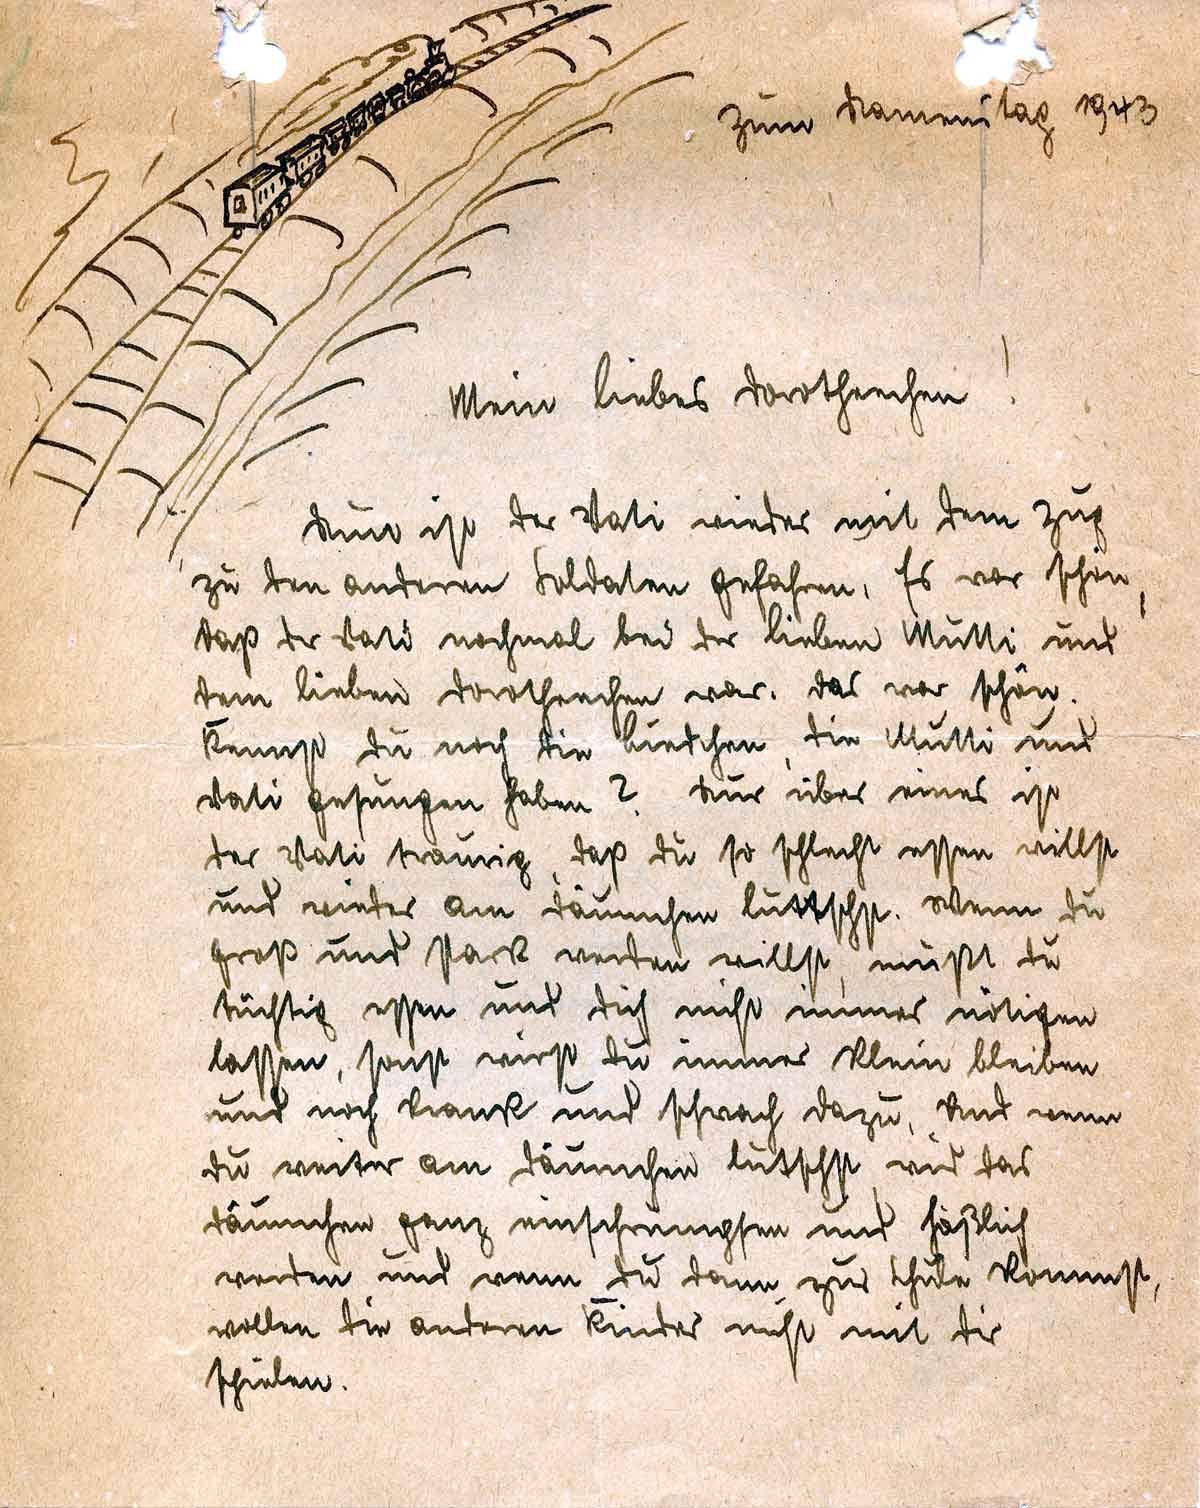 Zum Namenstag 1943
Mein liebes Dorotheechen!
Nun ist der Vati wieder mit dem Zug
zu den anderen Soldaten gefahren. Es war schön,
daß der Vati nochmal bei der lieben Mutti und
dem lieben Dorotheechen war. Das war schön.
Kennst du noch die Liedchen, die Mutti und
Vati gesungen haben? Nur über eines ist
der Vati traurig, daß du so schlecht essen willst
und wieder am Däumchen luttschst. Wenn du
groß und stark werden willst, mußt du
tüchtig essen und dich nicht immer nötigen
lassen, sonst wirst du immer klein bleiben
und noch krank und schwach dazu. Und wenn
du weiter am Däumchen lutschst, wid das
Däumchen ganz einschrumpfen und häßlich
werden und wenn du dann zur Schule kommst,
wollen die anderen Kinder nicht mit dir
spielen.